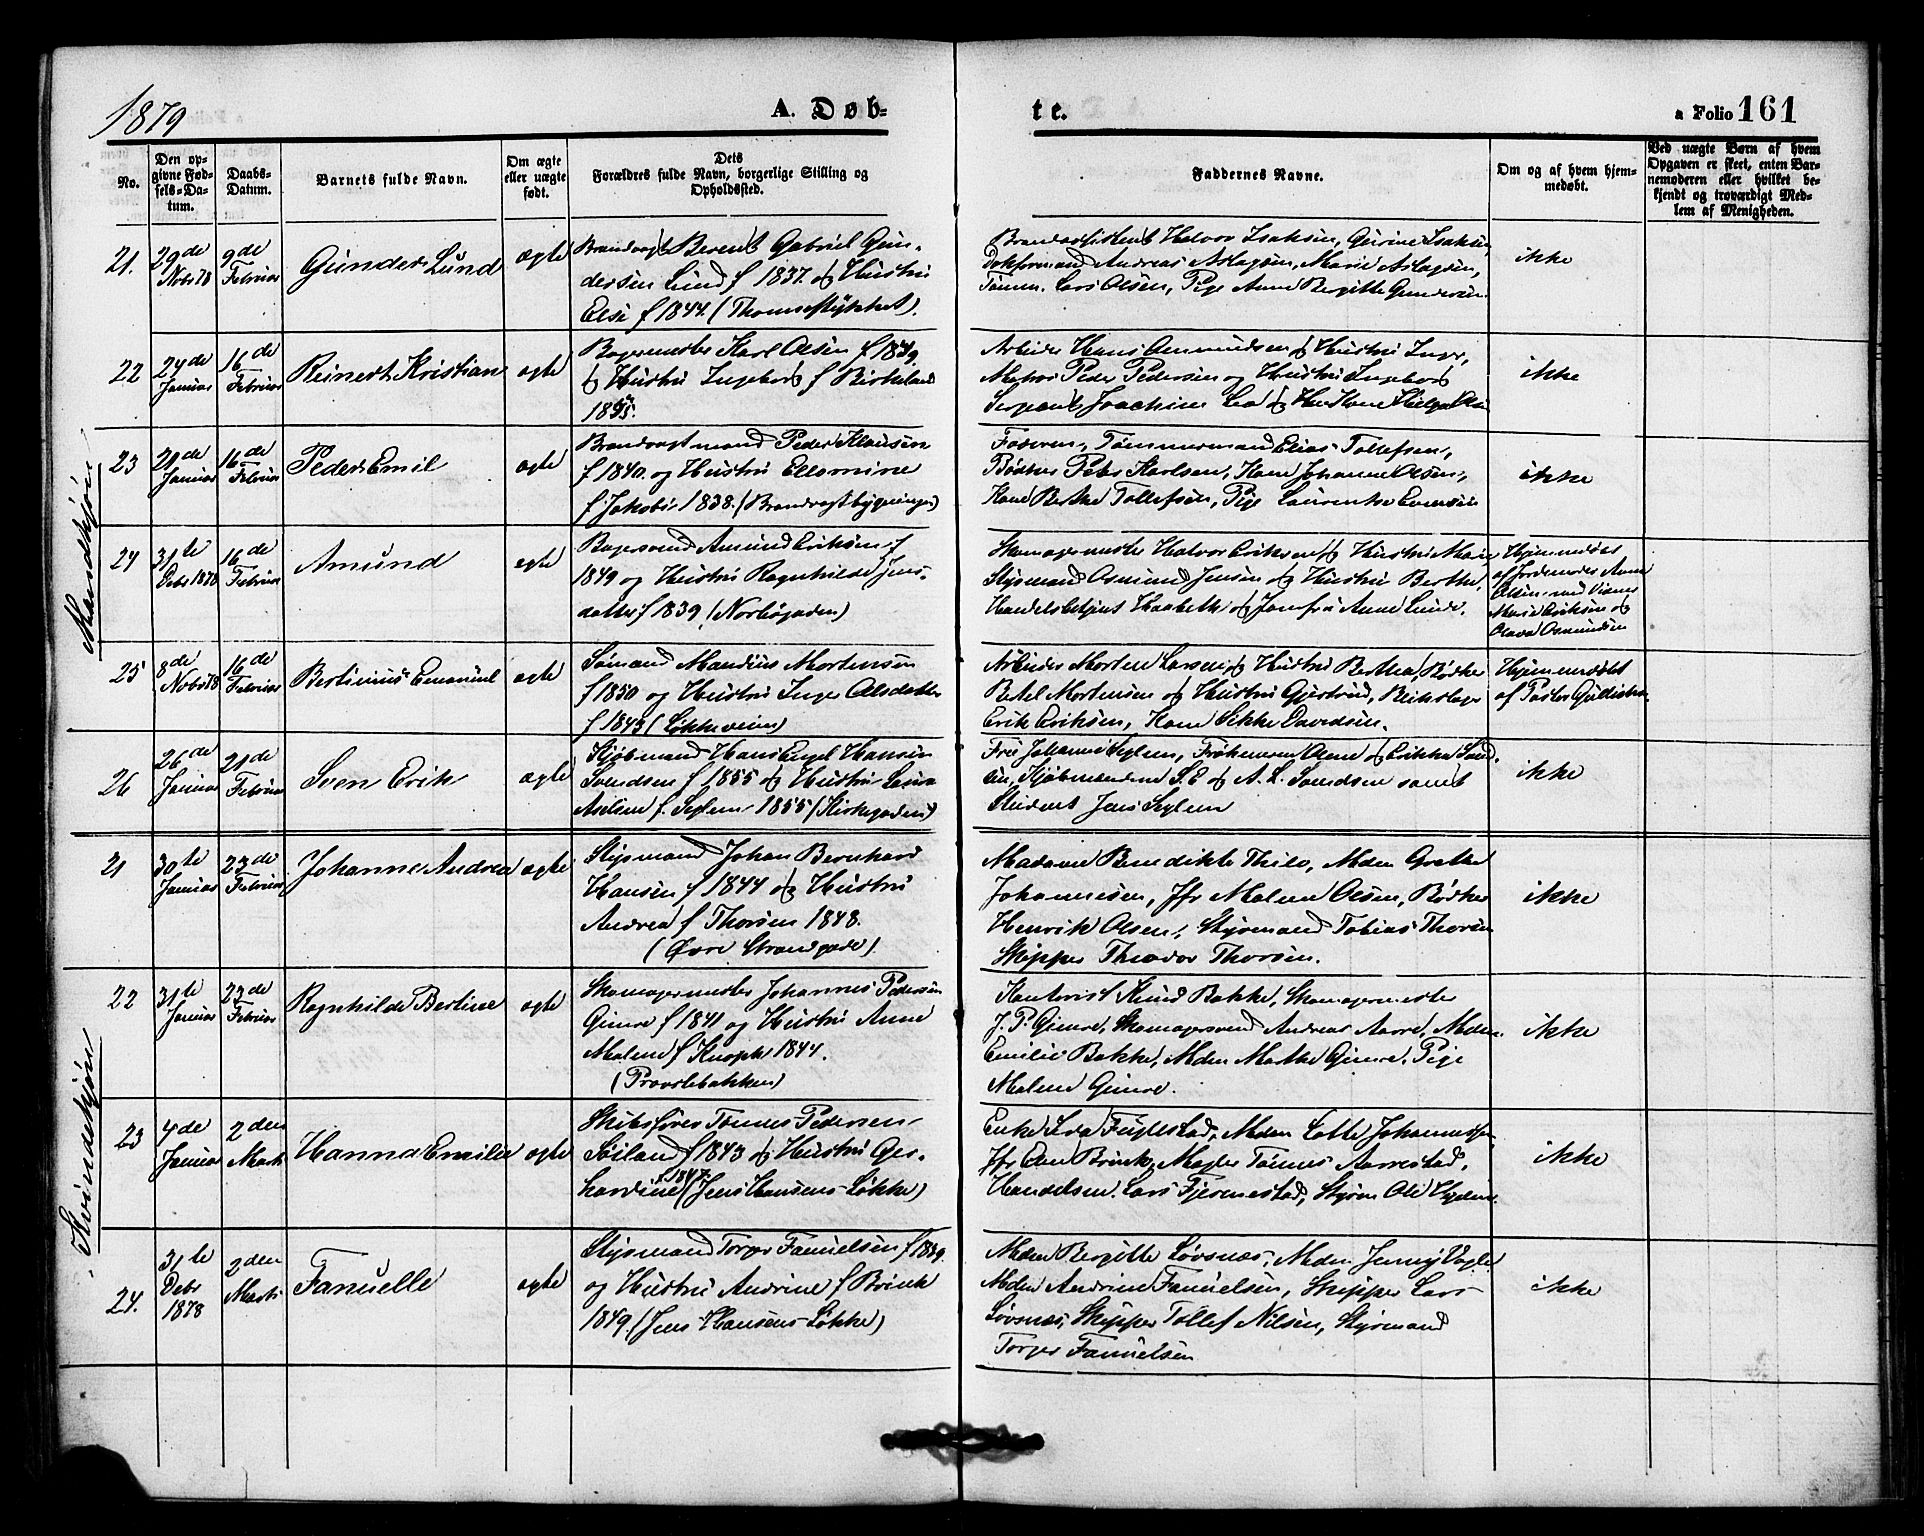 1879
A. Døb-
te.
a Folio 161
No.
Den op-
givne Fød-
sels-Da-
tum.
Daabs-
Datum.
Barnets fulde Navn.
Om ægte
eller uægte
født.
Dets
Forældres fulde Navn, borgerlige Stilling og
Opholdssted.
Faddernes Navne.
Om og af hvem hjem-
medøbt.
Ved uægte Børn af hvem
Opgaven er skeet, enten Bar-
nemoderen eller hvilket be-
kjendt og troværdigt Med-
lem af Menigheden.
Mandkjøn
21.
29de
Nobr 78
9de
Februar
Gunder Lund
ægte
Brandvagt Berent Gabriel Gun-
dersen Lund f 1837. og Hustru
Elsi f 1844. (Thomsestykket).
Brandassistent Halvor Isaksen, Gurine Isaksen
Dokformand Andreas Aslagsen, Marie Aslagsen,
Tømm. Lars Olsen, Pige Anne Bergitte Gundersen
ikke
22
24de
Januar
16de
Februar
Reinert Kristian
ægte
Bagermester Karl Olsen f 1849
og Hustru Ingeborg f Birkeland
1855.
Arbeider Hans Osmundsen og Hustru Inger,
Matros Peder Pedersen og Hustru Ingeborg
Sergeant Joachim Lea og Kone Helga
ikke
23
29de
Januar
16de
Februar
Peder Emil
ægte
Brandvagtmand Peder Klausen
f 1840. og Hustru Ellomine
f Jakobs 1838. (Brandvagtbygningen)
Faderen, Tømmermand Elias Tollefsen,
Bødker Peter Karlsen, Kone Johanne Olsen,
Kone Berthe Tollefsen, Pige Laurentse Enersen
ikke
24
31te
Debr 1878
16de
Februar
Amund
ægte
Bagersvend Amund Eriksen f
1849 og Hustru Ragnhilde Jens-
datter f 1839 (Norbøgaden)
Skomagermester Halvor Eriksen og Hustru Marie
Styrmand Osmund Jensen og Hustru Berthe,
Handelsbetjent Haabeth og Jomfru Anne Lunde.
Hjemmedøbt
af Jordemoder Anne
Olsen med Vidner
Marie Eriksen og
Olava Osmundsen
25
8de
Nobr 78
16de
Februar
Bertinius Emanuel
ægte
Sømand Mandius Mortensen
f 1850 og Hustru Inger Olsdatter
f 1843 (Løkkeveien)
Arbeider Morten Larsen og Hustru Bertha, Bødker
Betel Mortensen og Hustru Gjertrud, Rebslager
Erik Eriksen, Kone Sikke Davidsen.
Hjemmedøbt
af Pastor
26
26de
Januar
21de
Februar
Sven Erik
ægte
Kjøbmand Hans Engel Hansen
Svendsen f 1855 og Hustru Laura
Axeline f. Seglem 1855 (Kirkegaden)
Fru Johanne Seglem, Frøknerne Olene og Erikka Svend-
sen, Kjøbmændene S. E og A. L. Svendsen samt
Student Jens Seglem
ikke
Kvindekjøn
21
30te
Januar
23de
Februar
Johanne Andrea
ægte
Styrmand Johan Bernhard
Hansen f 1844 og Hustru
Andrea f Thorsen 1848.
(Øvre Strandgade)
Madame Benedikte Thilo, Mdm Grethe
Johannesen, Jfr Malene Olsen, Bødker
Henrik Olsen, Styrmand Tobias Thorsen
Skipper Theodor Thorsen.
ikke
22
31te
Januar
23de
Februar
Ragnhilde Bertine
ægte
Skomagermester Johannes Pedersen
Gimre f 1841 og Hustru Anne
Malene f Knoph 1844.
(Provstebakken)
Kontorist Knud Bakke, Skomagermester
J. P. Gimre, Skomagersvend Andreas Aarre, Mdm.
Emilie Bakke, Mdm Marthe Gimre, Pige
Malene Gimre.
ikke
23
4de
Januar
2den
Marts
Hanna Emilie
ægte
Skibsfører Tønnes Pedersen
Soiland f 1843 og Hustru Ger-
hardine f 1847 (Jens Hansens Løkke)
Enke Eva Fuglestad, Mdm Lotte Johannessen,
Jfr Brink, Mægler Tønnes Aarrestad,
Handelsm. Lars Fjermestad, Styrm Ole
ikke
24.
31te
Debr
1878
2den
Marts
Fanuelle
ægte
Styrmand Torger Fanuelsen f 1839
og Hustru Andrine f Brink
1849. (Jens Hansens Løkke)
Mdm Bergitte Løvsnæs, Mdm Jenny Vogle
Mdm Andrine Fanuelsen, Skipper Lars
Løvsnæs, Skipper Tollef Nilsen, Styrmand
Torger Fanuelsen
ikke